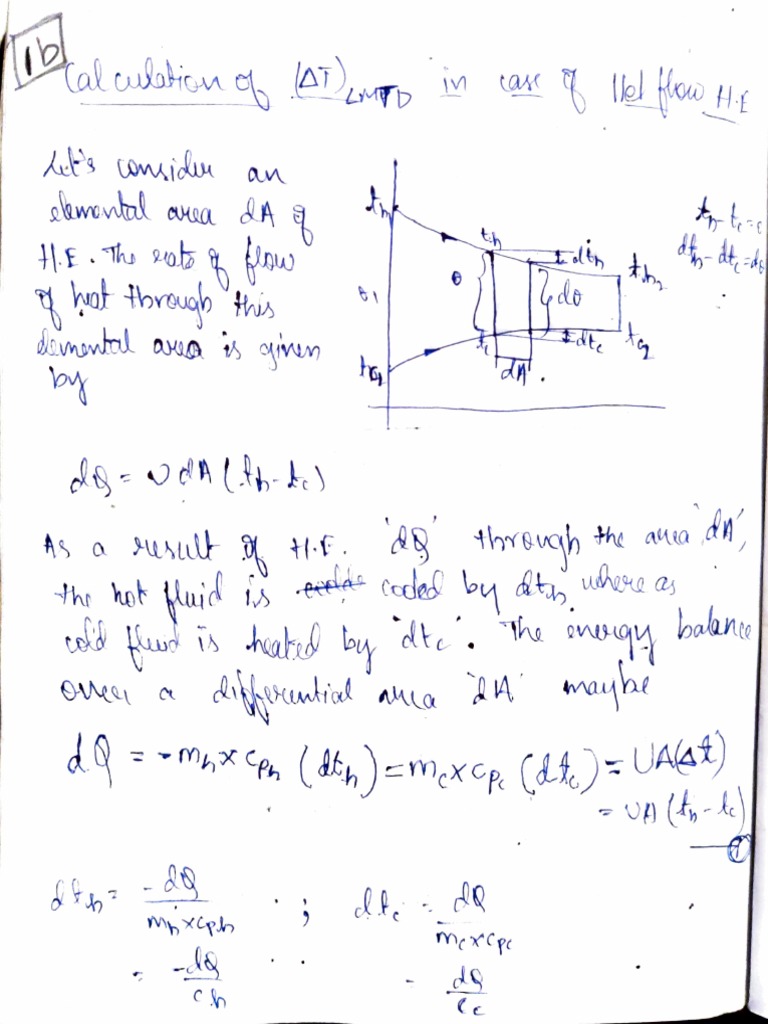 1b
Calculation of (ΔT)LMTD in case of llel flow H.E
Let's consider an
elemental area dA of
H.E. The rate of flow
of heat through this
elemental area is given
by
th
th
dth
th2
θ1
θ
dθ
tc
dtc
tc2
tc1
dA
th - tc =
dth - dtc = dθ
dQ = U dA (th - tc)
As a result of H.E. 'dQ' through the area 'dA',
the hot fluid is cooled by dth where as
cold fluid is heated by 'dtc'. The energy balance
over a differential area 'dA' maybe
dQ = -mh × cph (dth) = mc × cpc (dtc) = UA(Δt)
= UA (th - tc)
1
dth = -dQ / mh × cph ; dtc = dQ / mc × cpc
= -dQ / ch = dQ / cc